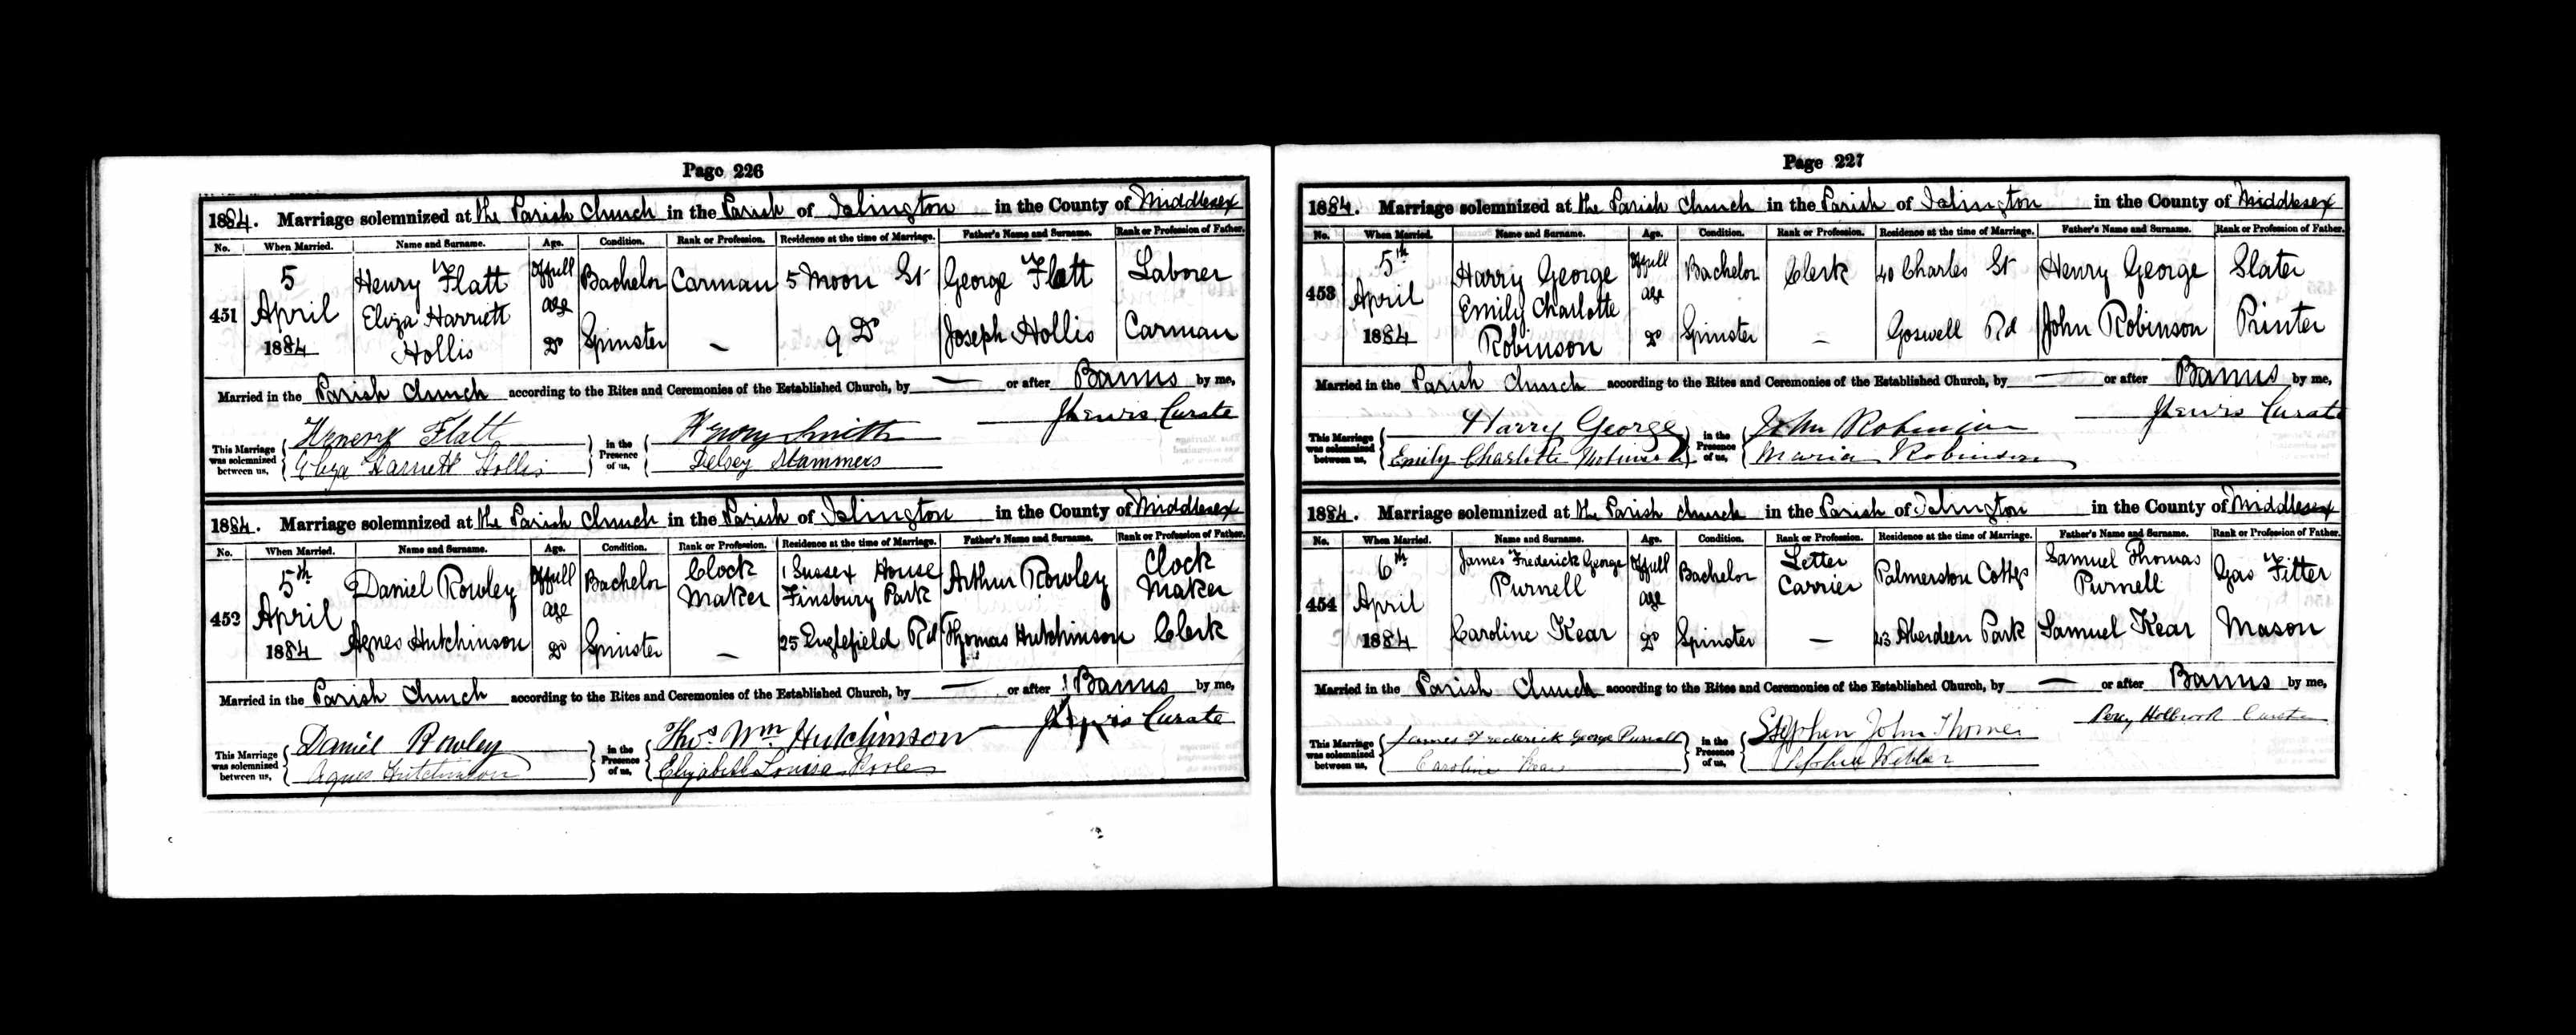 Page 226
1884. Marriage solemnized at the Parish Church in the Parish of Islington in the County of Middlesex
No. When Married. Name and Surname. Age. Condition. Rank or Profession. Residence at the time of Marriage. Father's Name and Surname. Rank or Profession of Father.
451 5 April 1884 Henry Flatt Of full age Bachelor Carman 5 Moon St George Flatt Laborer
Eliza Harriett Hollis Do Spinster – 9 Do Joseph Hollis Carman
Married in the Parish Church according to the Rites and Ceremonies of the Established Church, by — or after Banns by me,
JLewis Curate
This Marriage was solemnized between us, Henery Flatt in the Presence of us, Henry Smith
Eliza Harriett Hollis Stammers
1884. Marriage solemnized at the Parish Church in the Parish of Islington in the County of Middlesex
No. When Married. Name and Surname. Age. Condition. Rank or Profession. Residence at the time of Marriage. Father's Name and Surname. Rank or Profession of Father.
452 5th April 1884 Daniel Rowley Of full age Bachelor Clock Maker 1 Sussex House Finsbury Park Arthur Rowley Clock Maker
Agnes Hutchinson Do Spinster – 25 Englefield Rd Thomas Hutchinson Clerk
Married in the Parish Church according to the Rites and Ceremonies of the Established Church, by — or after Banns by me,
JLewis Curate
This Marriage was solemnized between us, Daniel Rowley in the Presence of us, Thos. Wm. Hutchinson
Agnes Hutchinson Elizabeth Louisa
Page 227
1884. Marriage solemnized at the Parish Church in the Parish of Islington in the County of Middlesex
No. When Married. Name and Surname. Age. Condition. Rank or Profession. Residence at the time of Marriage. Father's Name and Surname. Rank or Profession of Father.
453 5th April 1884 Harry George Of full age Bachelor Clerk 40 Charles St Henry George Slater
Emily Charlotte Robinson Do Spinster – Goswell Rd John Robinson Printer
Married in the Parish Church according to the Rites and Ceremonies of the Established Church, by — or after Banns by me,
JLewis Curate
This Marriage was solemnized between us, Harry George in the Presence of us, John Robinson
Emily Charlotte Robinson Maria Robinson
1884. Marriage solemnized at the Parish Church in the Parish of Islington in the County of Middlesex
No. When Married. Name and Surname. Age. Condition. Rank or Profession. Residence at the time of Marriage. Father's Name and Surname. Rank or Profession of Father.
454 6th April 1884 James Frederick George Purnell Of full age Bachelor Letter Carrier Palmerston Cottgs Samuel Thomas Purnell Gas Fitter
Caroline Kear Do Spinster – 43 Aberdeen Park Samuel Kear Mason
Married in the Parish Church according to the Rites and Ceremonies of the Established Church, by — or after Banns by me,
Percy Holbrook Curate
This Marriage was solemnized between us, James Frederick George Purnell in the Presence of us, Stephen John
Caroline Kear